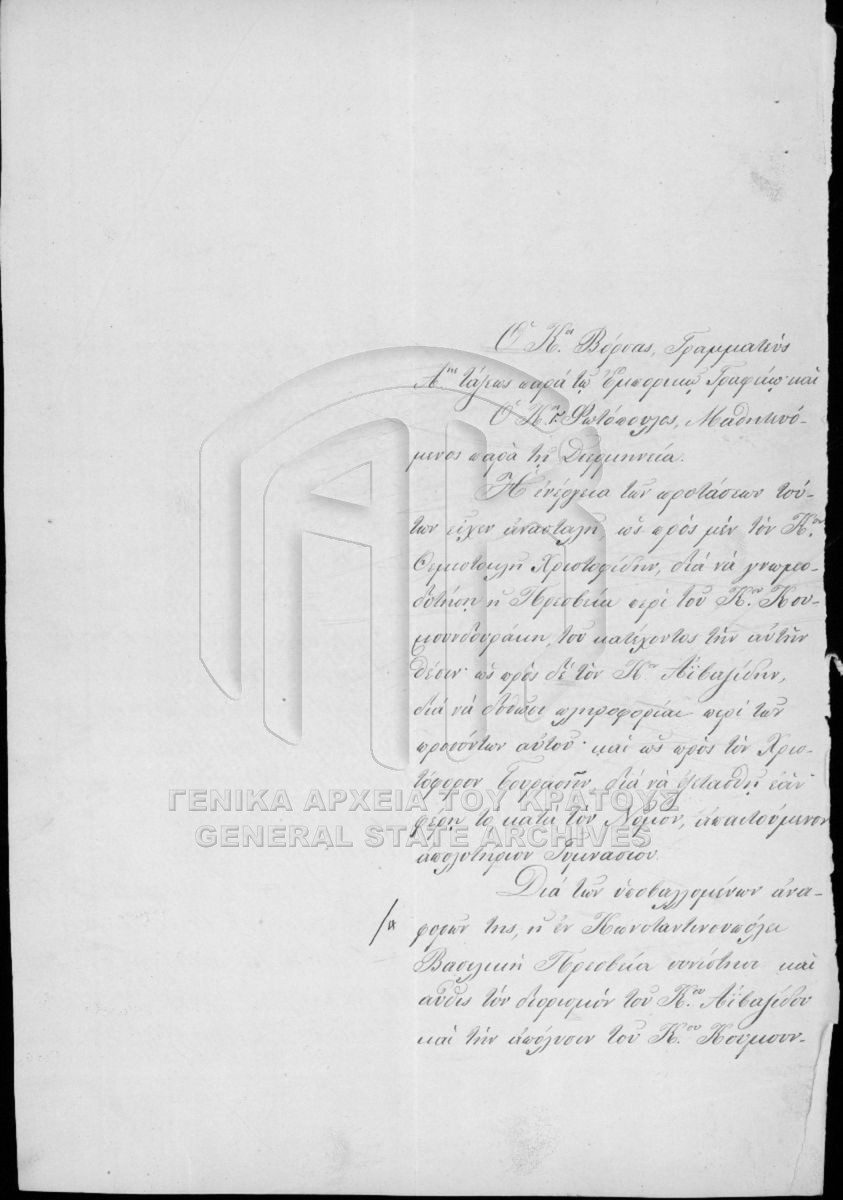 Ὁ Κος Βόρσας, Γραμματεὺς
Αης τάξεως παρὰ τῷ Ἐμπορικῷ Γραφείῳ· καὶ
Ὁ Κος Φωτόπουλος, Μαθητευό-
μενος παρὰ τῇ Διερμηνείᾳ.
Ἡ ἐνέργεια τῶν προτάσεων τού-
των εἶχεν ἀνασταλῆ ὡς πρὸς μὲν τὸν Κον
Θεμιστοκλῆ Χριστοφίδην, διὰ νὰ γνωμο-
δοτήσῃ ἡ Πρεσβεία περὶ τοῦ Κου Κου-
μουνδουράκη, τοῦ κατέχοντος τὴν αὐτὴν
θέσιν· ὡς πρὸς δὲ τὸν Κον Αϊβαζίδην,
διὰ νὰ δοθῶσι πληροφορίαι περὶ τῶν
προσόντων αὐτοῦ· καὶ ὡς πρὸς τὸν Χρισ-
τόφορον διὰ νὰ ἐξετασθῇ ἐὰν
φέρῃ τὸ κατὰ τὸν Νόμον, ἀπαιτούμενον
ἀπολυτήριον Γυμνασίου.
Διὰ τῶν ὑποβαλλομένων ἀνα-
/α φορῶν της, ἡ ἐν Κωνσταντινουπόλει
Βασιλικὴ Πρεσβεία συνίστησι καὶ
αὖθις τὸν διορισμὸν τοῦ Κου Αϊβαζίδου
καὶ τὴν ἀπόλυσιν τοῦ Κου Κουμουν-
ΓΕΝΙΚΑ ΑΡΧΕΙΑ ΤΟΥ ΚΡΑΤΟΥΣ
GENERAL STATE ARCHIVES